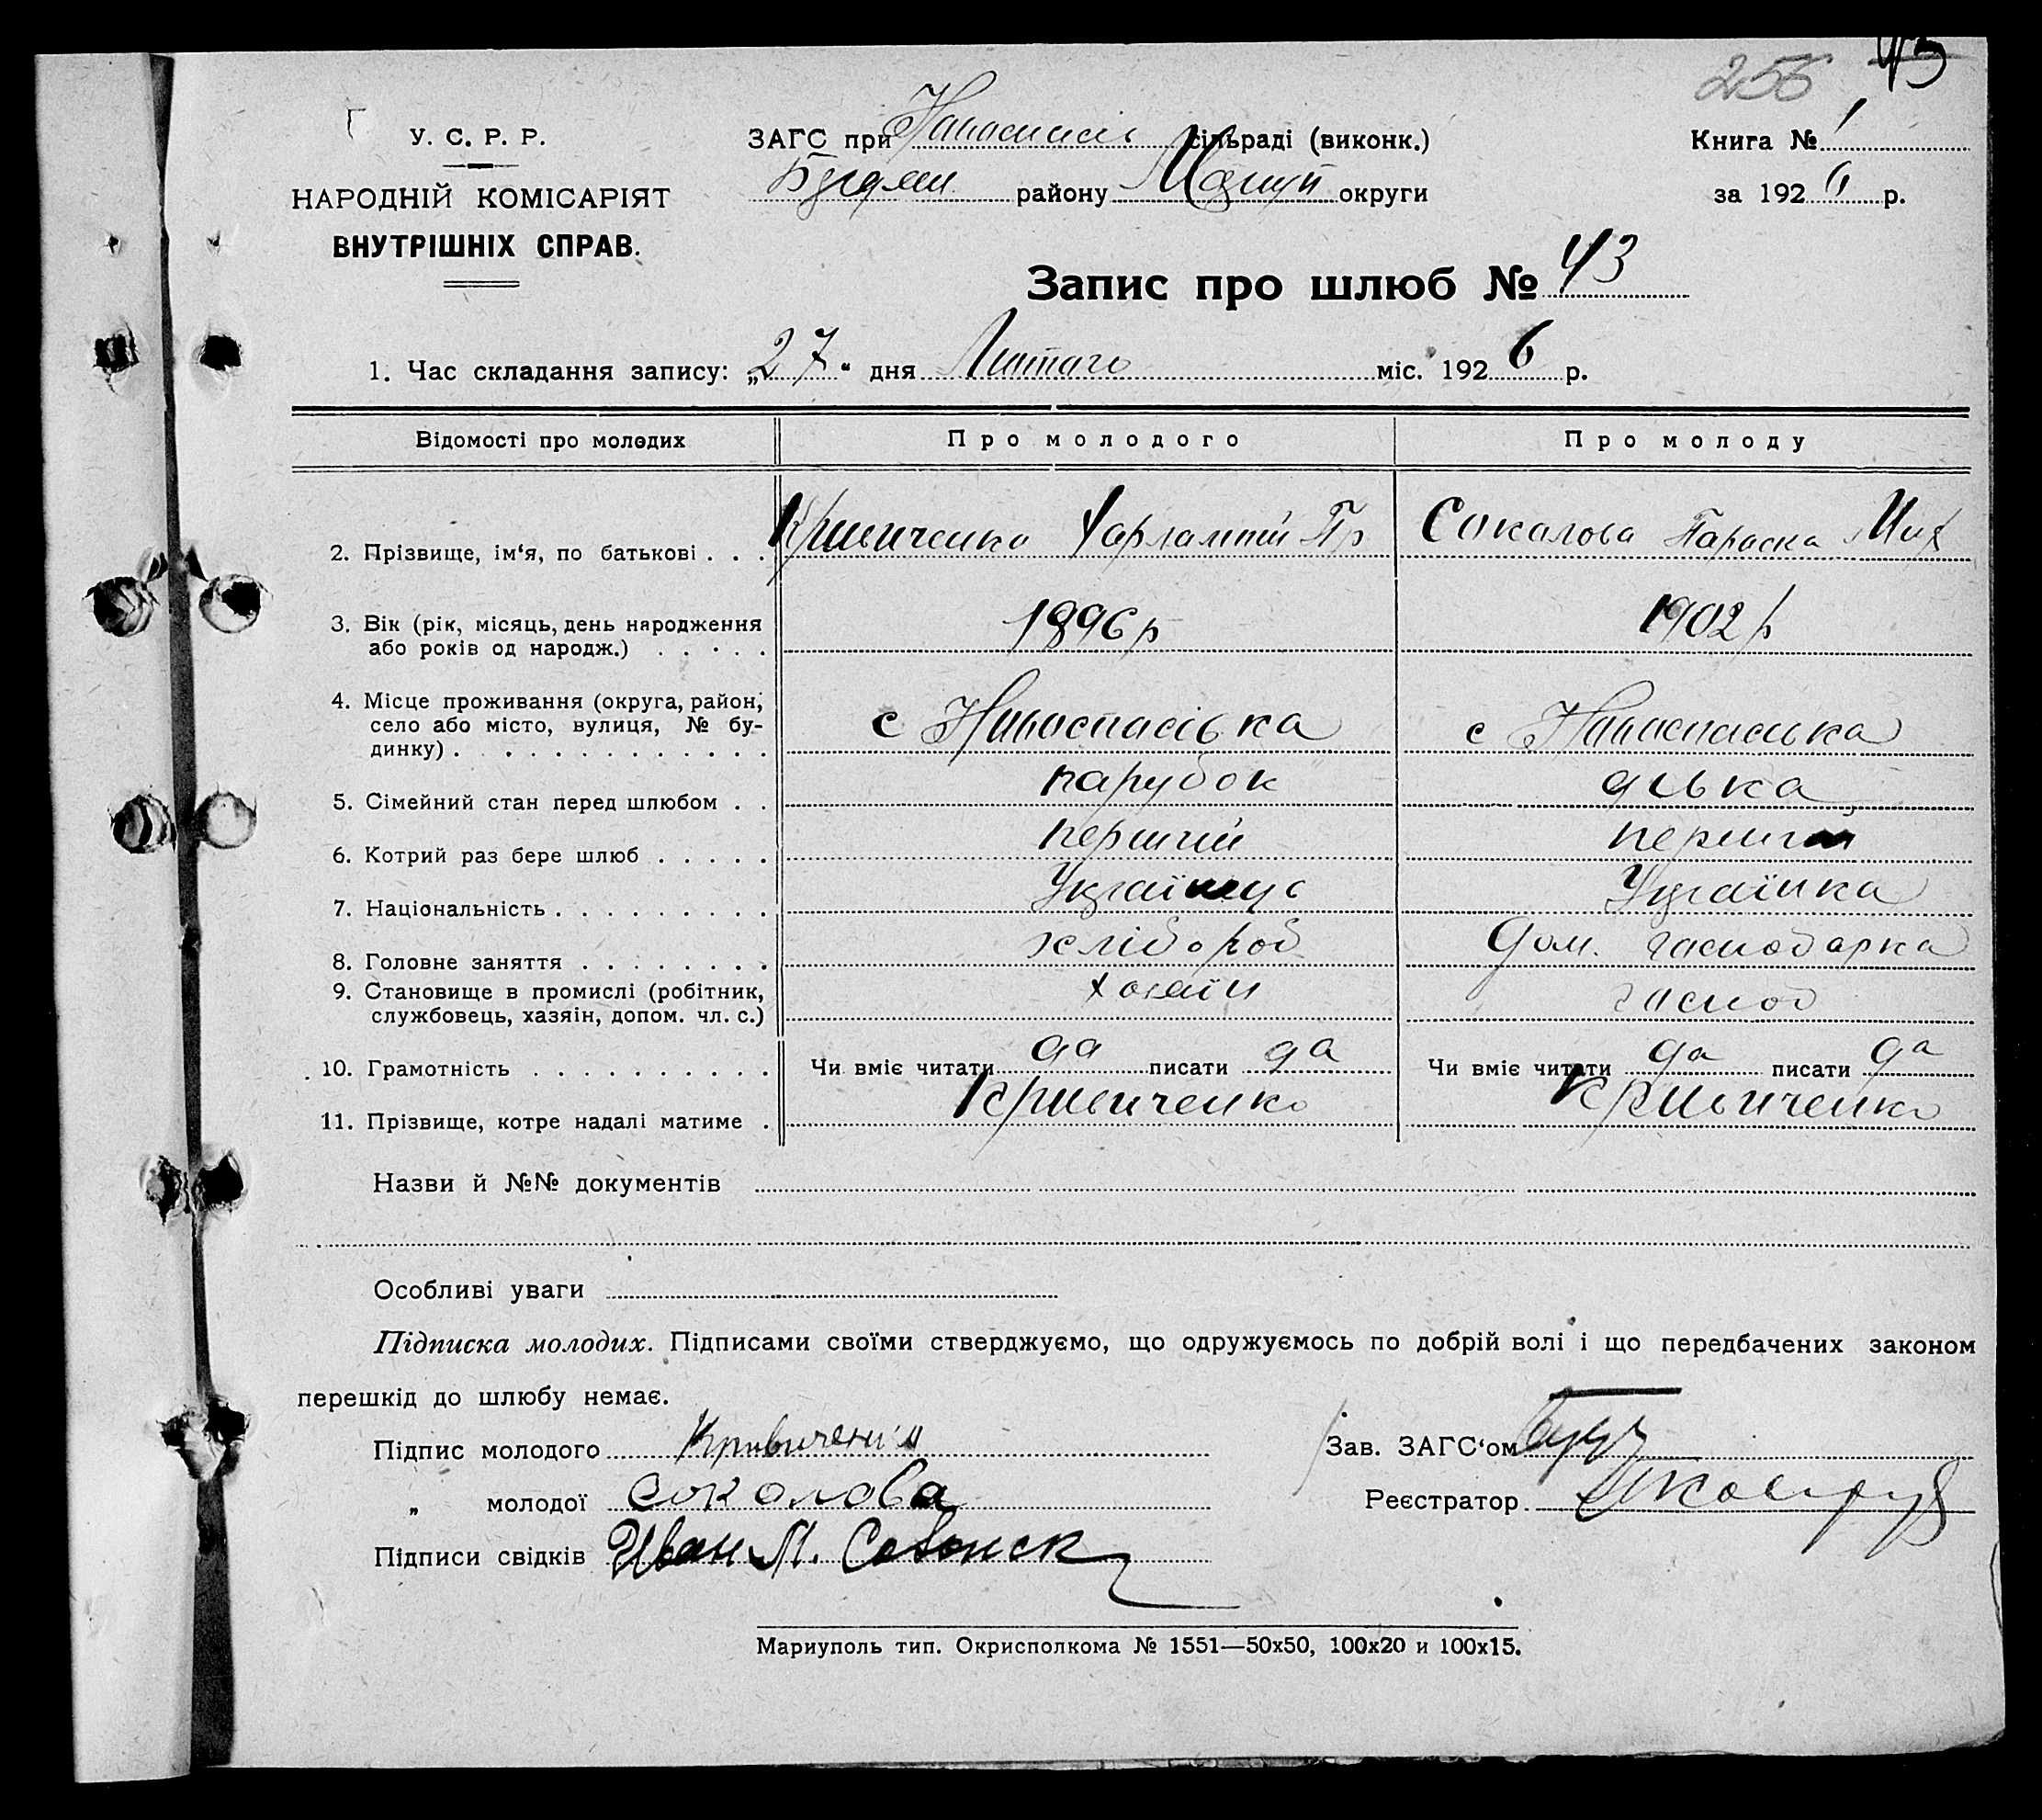 256 43
У. С. Р. Р.
НАРОДНІЙ КОМІСАРІЯТ
ВНУТРІШНІХ СПРАВ.
ЗАГС при Новоспасів сільраді (виконк.)
району Маріуп округи
Книга № 1
за 1926 р.
Запис про шлюб № 43
1. Час складання запису: „27“ дня Лютого міс. 1926 р.
Відомості про молодих Про молодого Про молоду
2. Прізвище, ім‘я, по батькові . . . Кривиченко Харлампій Пр Соколова Параска Мих
3. Вік (рік, місяць, день народження
або років од народж.) . . . . . 1896 р 1902 р
4. Місце проживання (округа, район,
село або місто, вулиця, № бу-
динку) . . . . . . . . . . . . с Новоспасівка с Новоспасівка
5. Сімейний стан перед шлюбом . . парубок дівка
6. Котрий раз бере шлюб . . . . . перший перший
7. Національність . . . . . . . . . Українець Українка
8. Головне заняття . . . . . . . . хлібороб Дом. господарка
9. Становище в промислі (робітник,
службовець, хазяін, допом. чл. с.) хозяїн господ
10. Грамотність . . . . . . . . . . Чи вміє читати да писати да Чи вміє читати да писати да
11. Прізвище, котре надалі матиме . Кривиченко Кривиченко
Назви й №№ документів
Особливі уваги
Підписка молодих. Підписами своїми стверджуємо, що одружуємось по добрій волі і що передбачених законом
перешкід до шлюбу немає.
Підпис молодого Кривиченко
Зав. ЗАГС‘ом
„ молодої Соколова
Реєстратор
Підписи свідків Иван М.
Мариуполь тип. Окрисполкома № 1551—50х50, 100х20 и 100х15.